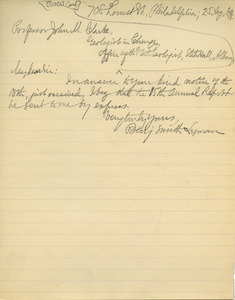 708 Locust St., Philadelphia, 25 Aug,
Professor John M. Clarke,
Geologist in Charge,
Office of the State Geologist, State Hall, Albany
My dear Sir:
In answer to your kind notice of the
18th, just received, I beg that the 15th Annual Report
be sent to me by express.
Very truly yours,
Benj Smith Lyman.